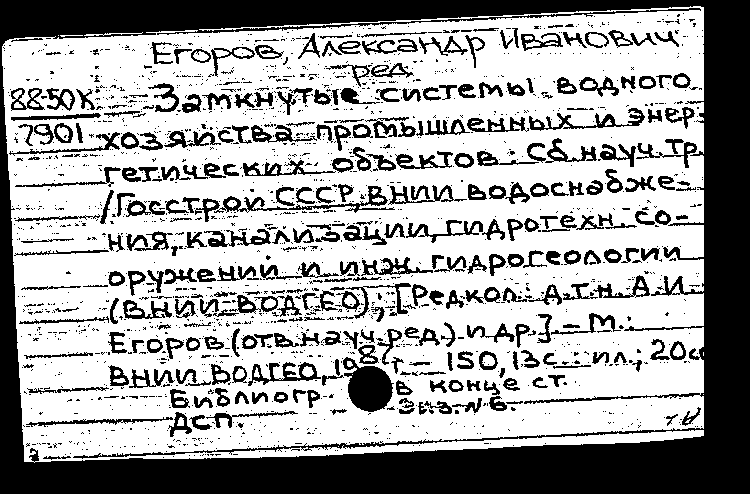 Егоров, Александр Иванович
ред.
88-50К Замкнутые системы водного
7901 хозяйства промышленных и энер-
гетических объектов: Сб. науч. тр.
/Госстрой СССР, ВНИИ водоснабже-
ния, канализации, гидротехн. со-
оружений и инж. гидрогеологии
(ВНИИ ВОДГЕО); [Редкол.: д.т.н. А.И.
Егоров (отв. науч. ред.) и др.] – М.:
ВНИИ ВОДГЕО, 198 г – 150, 13с.: ил.; 20см
Библиогр. в конце ст.
ДСП. Экз. №6.